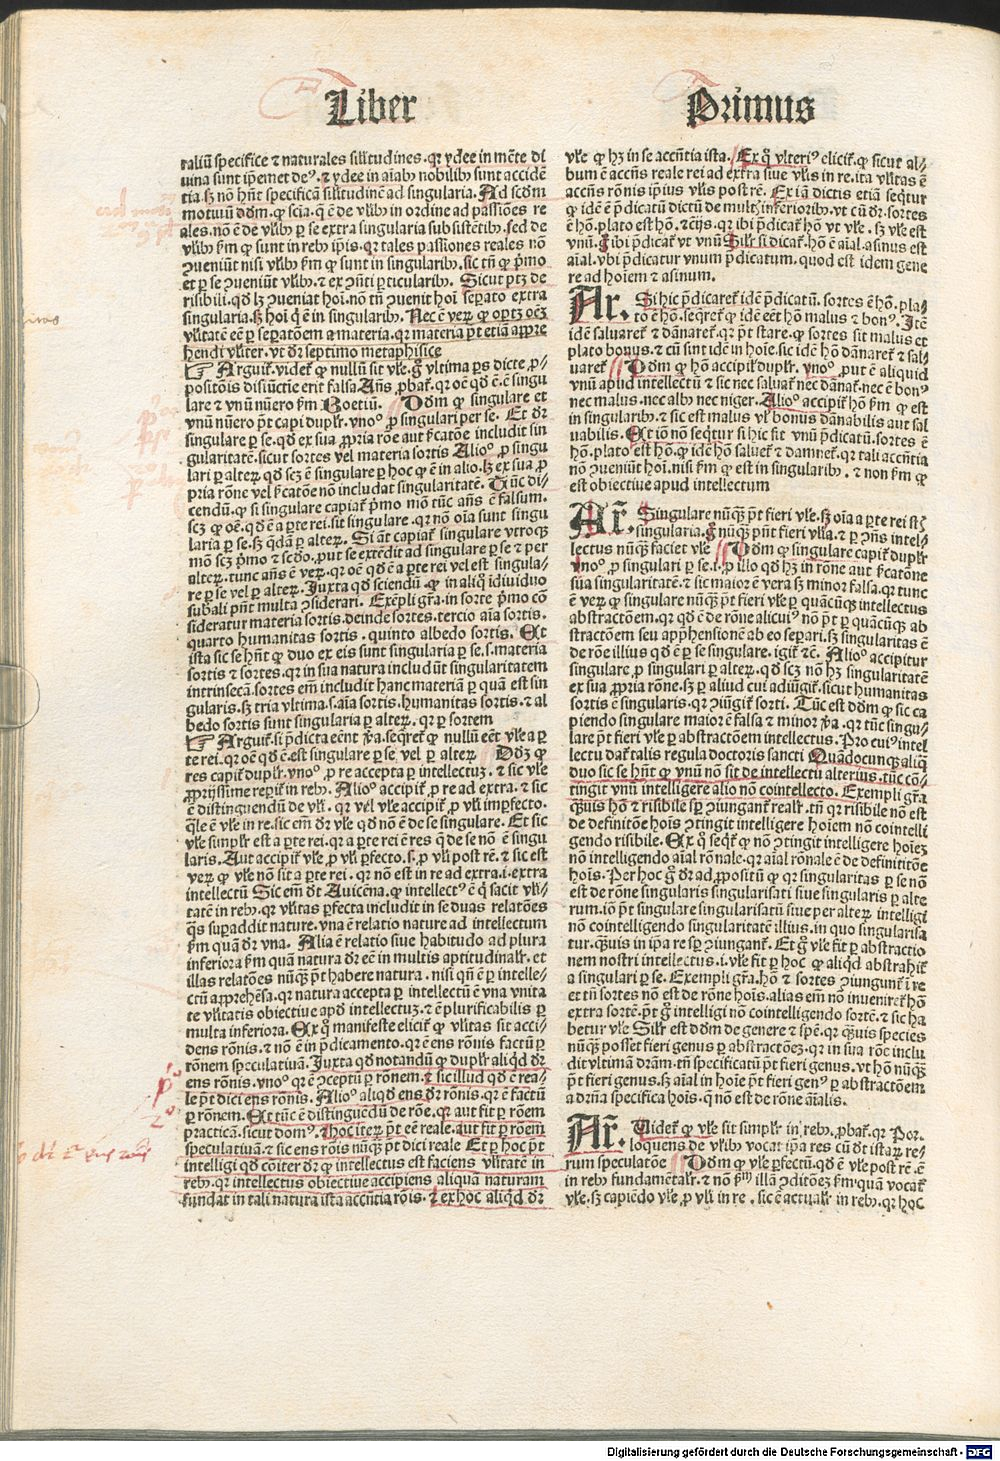 Liber Primus
taliū specifice ⁊ naturales silitudines. qꝛ ydee in mēte di
uina sunt ip̄emet deꝰ. ⁊ ydee in aīab᷒ nobilib᷒ sunt accidē
tia. sꝫ nō hn̄t specificā silitudinē ad singularia. Ad scdm
motiuū dōm. ꝙ scīa. q̄ ē de vlib᷒ in ordine ad passiōes re
ales. nō ē de vlib᷒ ꝑ se extra singularia subsistētib᷒. sed de
vlib᷒ ẜm ꝙ sunt in reb᷒ ip̄is. qꝛ tales passiones reales nō
ꝯueniūt nisi vlib᷒ ẜm ꝙ sunt in singularib᷒. sic tn̄ ꝙ p̄mo
et ꝑ se ꝯueniūt vlib᷒. ⁊ ex ꝯn̄ti ꝑticularib᷒. Sicut ptꝫ de
risibili. qd lꝫ ꝯueniat hoi. nō tn̄ ꝯuenit hoi sepato extra
singularia. sꝫ hoi q̄ ē in singularib᷒. Nec ē veꝝ ꝙ oꝑtꝫ oēꝫ
vlitatē eē ꝑ sepatōem a materia. qꝛ materia pt̄ etiā appre
hendi vliter. vt dr̄ septimo metaphisice
☞ Arguit᷑. videt᷑ ꝙ nullū sit vle. g̊ vltima ps dicte ꝓ-
positōis disiūctie erit falsa. Añs ꝓbat᷑. qꝛ oē qd ē. ē singu
lare ⁊ vnū nūero ẜm Boetiū. Dōm ꝙ singulare et
vnū nūero pt̄ capi duplr᷑. vnoº ꝓ singulari per se. Et dr̄
singulare ꝑ se. qd ex sua ꝓpria rōe aut ẜcatōe includit sin
gularitatē. sicut sortes vel materia sortis Alioº ꝓ singu
lari ꝑ alteꝝ. qd scꝫ ē singulare ꝑ hoc ꝙ ē in alio. sꝫ ex sua ꝓ
pria rōne vel ẜcatōe nō includat singularitatē. Tūc di-
cendū. ꝙ si singulare capiat᷑ p̄mo mō tūc añs ē falsum.
scꝫ ꝙ oē. qd ē a ꝑte rei. sit singulare. qꝛ nō oīa sunt singu
laria ꝑ se. sꝫ qdā ꝑ alteꝝ. Si aūt capiat᷑ singulare vtroqꝫ
mō scꝫ p̄mo ⁊ scdo. ꝓut se extēdit ad singulare ꝑ se ⁊ per
alteꝝ. tunc añs ē veꝝ. qꝛ oē qd ē a ꝑte rei vel est singula-
re ꝑ se vel ꝑ alteꝝ. Juxta qd sciendū. ꝙ in aliq̊ idiuiduo
subali pn̄t multa ꝯsiderari. Exēpli grā. in sorte p̄mo cō
sideratur materia sortis. deinde sortes. tercio aīa sortis.
quarto humanitas sortis. quinto albedo sortis. Et
ista sic se hn̄t ꝙ duo ex eis sunt singularia ꝑ se. s. materia
sortis ⁊ sortes. qꝛ in sua natura includūt singularitatem
intrinsecā. sortes em̄ includit hanc materiā ꝑ quā est sin
gularis. sꝫ tria vltima. s. aīa sortis. humanitas sortis. ⁊ al
bedo sortis sunt singularia ꝑ alteꝝ. qꝛ ꝑ sortem
☞ Arguit᷑. si p̄dicta eēnt ꝟa. seq̄ret᷑ ꝙ nullū eēt vle a ꝑ
te rei. qꝛ oē qd ē. est singulare ꝑ se vel ꝑ alteꝝ Dōꝫ ꝙ
res capit᷑ duplr᷑. vnoº. ꝓ re accepta ꝑ intellectuꝫ. ⁊ sic vle
ꝓprijssime reꝑit᷑ in reb᷒. Alioº accipit᷑ ꝓ re ad extra. ⁊ sic
ē distinguendū de vli. qꝛ vel vle accipit᷑ ꝓ vli imperfecto.
q̄le ē vle in re. sic em̄ dr̄ vle qd nō ē de se singulare. Et sic
vle simplr᷑ est a ꝑte rei. qꝛ a ꝑte rei ē res q̄ de se nō ē singu
laris. Aut accipit᷑ vle ꝓ vli ꝑfecto. s. ꝓ vli post rē. ⁊ sic est
veꝝ ꝙ vle nō sit a ꝑte rei. qꝛ nō est in re ad extra. i. extra
intellectū Sic em̄ dt Auicēna. ꝙ intellectꝰ ē q̄ facit vli-
tatē in reb᷒. qꝛ vlitas ꝑfecta includit in se duas relatōes
q̄s supaddit nature. vna ē relatio nature ad intellectum
ẜm quā dr̄ vna. Alia ē relatio siue habitudo ad plura
inferiora ẜm quā natura dr̄ eē in multis aptitudinalr᷑. et
illas relatōes nūqꝫ pt̄ habere natura. nisi qn̄ ē ꝑ intelle-
ctū apprehēsa. qꝛ natura accepta ꝑ intellectū ē vna vnita
te vlitatis obiectiue apd intellectuꝫ. ⁊ ē plurificabilis ꝑ
multa inferiora. Ex q̊ manifeste elicit᷑ ꝙ vlitas sit acci-
dens rōnis. ⁊ nō ē in p̄dicamento. qꝛ ē ens rōnis factū ꝑ
rōnem speculatiuā. Juxta qd notandū ꝙ duplr᷑ aliqd dr̄
ens rōnis. vnoº qꝛ ē ꝯceptū ꝑ rōnem. ⁊ sic illud qd ē rea-
le pt̄ dici ens rōnis. Alioº aliqd ens dr̄ rōnis. qꝛ ē factū
ꝑ rōnem. Et tūc ē distinguēdū de rōe. qꝛ aut fit ꝑ rōem
practicā. sicut domꝰ. ⁊ hoc iteꝝ pt̄ eē reale. aut fit ꝑ rōem
speculatiuā. ⁊ sic ens rōis nūqꝫ pt̄ dici reale Et ꝑ hoc pt̄
intelligi qd cōiter dr̄ ꝙ intellectus est faciens vlitatē in
reb᷒. qꝛ intellectus obiectiue accipiens aliquā naturam
fundat in tali natura ista accn̄tia rōis. ⁊ ex hoc aliqd dr̄
vle ꝙ hꝫ in se accn̄tia ista. Ex q̊ vlteriꝰ elicit᷑. ꝙ sicut al-
bum ē accn̄s reale rei ad extra siue vlis in re. ita vlitas ē
accn̄s rōnis ip̄ius vlis post rē. Ex iā dictis etiā seq̄tur
ꝙ idē ē p̄dicatū dictū de multꝫ inferiorib᷒. vt cū dr̄. sortes
ē hō. plato est hō. ⁊ c̄ijs. qꝛ ibi p̄dicat᷑ hō vt vle. sꝫ vle est
vnū. g̊ ibi p̄dicat᷑ vt vnū Silr᷑ si dicat᷑. hō ē aīal. asinus est
aīal. vbi p̄dicatur vnum p̄dicatum. quod est idem gene
re ad hoiem ⁊ asinum.
Ar. Si hic p̄dicaret᷑ idē p̄dicatū. sortes ē hō. pla-
to ē hō. seq̄ret᷑ ꝙ idē eēt hō malus ⁊ bonꝰ. Itē
idē saluaret᷑ ⁊ dānaret᷑. qꝛ pt̄ stare. ꝙ sortes sit malus et
plato bonus. ⁊ cū sint idē in hoie. sic idē hō dānaret᷑ ⁊ sal-
uaret᷑ Dōm ꝙ hō accipit᷑ duplr᷑. vnoº. put ē aliquid
vnū apud intellectū ⁊ sic nec saluat᷑ nec dānat᷑. nec ē bonꝰ
nec malus. nec albꝰ nec niger. Alioº accipit᷑ hō ẜm ꝙ est
in singularib᷒. ⁊ sic est malus vel bonus dānabilis aut sal
uabilis. Et iō nō seq̄tur si hic fit vnū p̄dicatū. sortes ē
hō. plato est hō. ꝙ idē hō saluet᷑ ⁊ damnet᷑. qꝛ tali accn̄tia
nō ꝯueniūt hoi. nisi ẜm ꝙ est in singularib᷒. ⁊ non ẜm ꝙ
est obiectiue apud intellectum
Ar. Singulare nūqꝫ pt̄ fieri vle. sꝫ oīa a ꝑte rei st̄
singularia. g̊ nūqꝫ pn̄t fieri vlia. ⁊ ꝑ ꝯn̄s intel-
lectus nūqꝫ faciet vle Dōm ꝙ singulare capit᷑ duplr᷑
vnoº. ꝓ singulari ꝑ se. i. ꝓ illo qd hꝫ in rōne aut ẜcatōne
sua singularitatē. ⁊ sic maior ē vera sꝫ minor falsa. qꝛ tunc
ē veꝝ ꝙ singulare nūqꝫ pt̄ fieri vle ꝑ quācūqꝫ intellectus
abstractōem. qꝛ qd ē de rōne alicuiꝰ nō pt̄ ꝑ quācūqꝫ ab
stractōem seu apprehensionē ab eo separi. sꝫ singularitas ē
de rōne illius qd ē ꝑ se singulare. igit᷑ ⁊c̄. Alioº accipitur
singulare. ꝓ singulari ꝑ alteꝝ. qd scꝫ nō hꝫ singularitatē
ex sua ꝓpria rōne. sꝫ ꝑ aliud cui adiūgit᷑. sicut humanitas
sortis ē singularis. qꝛ ꝯiūgit᷑ sorti. Tūc est dōm ꝙ sic ca
piendo singulare maior ē falsa ⁊ minor ꝟa. qꝛ tūc singu-
lare pt̄ fieri vle ꝑ abstractōem intellectus. Pro cuiꝰ intel
lectu dat᷑ talis regula doctoris sancti Quādocunqꝫ aliq̄
duo sic se hn̄t ꝙ vnū nō sit de intellectu alterius. tūc cō-
tingit vnū intelligere alio nō cointellecto. Exempli grā
qꝫuis hō ⁊ risibile sp̄ ꝯiungant᷑ realr᷑. tn̄ qꝛ risibile nō est
de definitōe hois ꝯtingit intelligere hoiem nō cointelli
gendo risibile. Ex q̊ seq̄t᷑ ꝙ nō ꝯtingit intelligere hoieꝫ
nō intelligendo aīal rōnale. qꝛ aīal rōnale ē de definititōe
hois. Per hoc g̊ dr̄ ad ꝓpositū ꝙ qꝛ singularitas ꝑ se nō
est de rōne singularis singularisati siue singularis ꝑ alte
rum. iō pt̄ singulare singularisatū siue per alteꝝ intelligi
nō cointelligendo singularitatē illius. in quo singularisa
tur. qꝫuis in ip̄a re sp̄ ꝯiungant᷑. Et g̊ vle fit ꝑ abstractio
nem nostri intellectus. i. vle fit ꝑ hoc ꝙ aliqd abstrahit᷑
a singulari ꝑ se. Exempli grā. hō ⁊ sortes ꝯiungunt᷑ ī re
et tn̄ sortes nō est de rōne hois. alias em̄ nō inueniret᷑ hō
extra sortē. pt̄ g̊ intelligi nō cointelligendo sortē. ⁊ sic ha
betur vle Silr᷑ est dōm de genere ⁊ spē. qꝛ qꝫuis species
nūqꝫ posset fieri genus ꝑ abstractōeꝫ. qꝛ in sua rōe inclu
dit vltimā dram. tn̄ specificatū pt̄ fieri genus. vt hō nūqꝫ
pt̄ fieri genus. sꝫ aīal in hoie pt̄ fieri genꝰ ꝑ abstractōem
a drn̄a specifica hois. q̄ nō est de rōne aīalis.
Ar. Videt᷑ ꝙ vle sit simplr᷑ in reb᷒. ꝓbat᷑. qꝛ Por.
loquens de vlib᷒ vocat ip̄a res cū dt istaꝝ re-
rum speculatōe Dōm ꝙ vle ꝑfectū. qd ē vle post rē. ē
in reb᷒ fundamētalr᷑. ⁊ nō ẜm illā ꝯditōeꝫ ẜm quā vocat᷑
vle. sꝫ capiēdo vle. ꝓ vli in re. sic ē actualr᷑ in reb᷒. qꝛ hoc
Digitalisierung gefördert durch die Deutsche Forschungsgemeinschaft - DFG